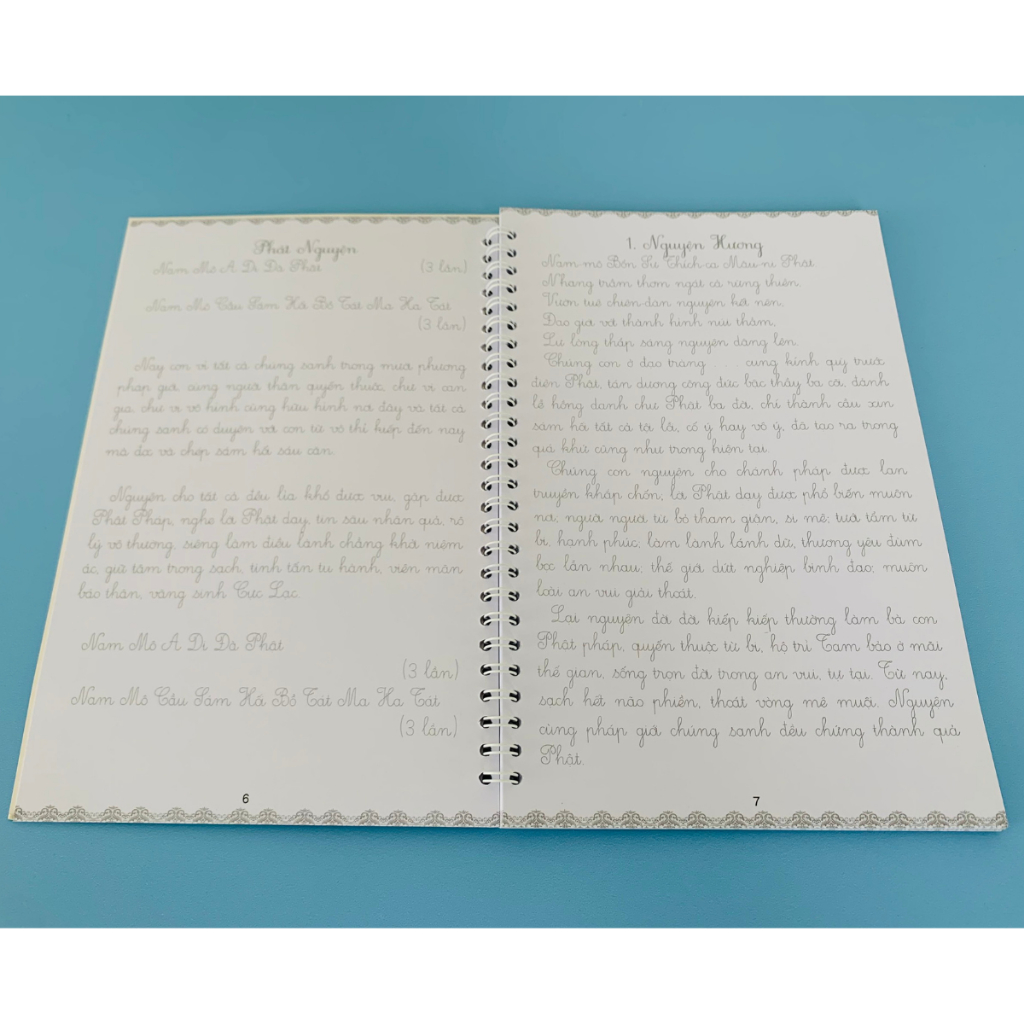 Phát Nguyện
Nam Mô A Di Đà Phật (3 lần)
Nam Mô Cầu Sám Hối Bồ Tát Ma Ha Tát
(3 lần)
Nay con vì tất cả chúng sanh trong mười phương
pháp giới, cùng người thân quyến thuộc, chư vị oan
gia, chư vị vô hình cùng hữu hình nơi đây và tất cả
chúng sanh có duyên với con từ vô thỉ kiếp đến nay
mà đọc và chép sám hối sâu căn.
Nguyện cho tất cả đều lìa khổ được vui, gặp được
Phật Pháp, nghe lời Phật dạy, tin sâu nhân quả, rõ
lý vô thường, siêng làm điều lành chẳng khởi niệm
ác, giữ tâm trong sạch, tinh tấn tu hành, viên mãn
báo thân, vãng sinh Cực Lạc.
Nam Mô A Di Đà Phật
(3 lần)
Nam Mô Cầu Sám Hối Bồ Tát Ma Ha Tát
(3 lần)
6
1. Nguyện Hương
Nam mô Bổn Sư Thích ca Mâu ni Phật
Nhang trầm thơm ngát cả rừng thiền,
Vườn tuệ chiên đàn nguyện kết nên,
Đao giới vót thành hình núi thẳm,
Lư lòng thắp sáng nguyện dâng lên.
Chúng con ở đạo tràng cung kính quỳ trước
điện Phật, tán dương công đức bậc thầy ba cõi, đảnh
lễ hồng danh chư Phật ba đời, chí thành cầu xin
sám hối tất cả tội lỗi, cố ý hay vô ý, đã tạo ra trong
quá khứ cũng như trong hiện tại.
Chúng con nguyện cho chánh pháp được lan
truyền khắp chốn, lời Phật dạy được phổ biến muôn
nơi; người người từ bỏ tham giận, si mê; tưới tẩm từ
bi, hạnh phúc; làm lành lánh dữ, thương yêu đùm
bọc lẫn nhau; thế giới dứt nghiệp binh đao; muôn
loài an vui giải thoát.
Lại nguyện đời đời kiếp kiếp thường làm bà con
Phật pháp, quyến thuộc từ bi, hộ trì Tam bảo ở mãi
thế gian, sống trọn đời trong an vui, tự tại. Từ nay,
sạch hết não phiền, thoát vòng mê muội. Nguyện
cùng pháp giới chúng sanh đều chứng thành quả
Phật.
7